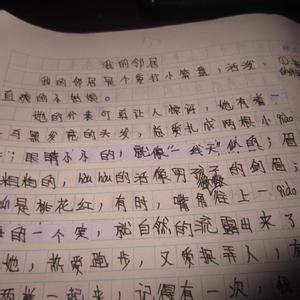 我的邻居
我的邻居是个爱打小算盘,活发、
直爽的小姑娘。
她的外表可真让人惊讶,她有着一
头黑发亮的头发,总爱扎成两根小
;眼睛小小的,就像“一线天”似的;眉
粗粗的,huhu的活像男孩子的剑眉;
是桃花红,有时,嘴角往上一
的一个笑,就自然的流露出来了
她,热爱跑步,又爱捉弄人,
起来,记得有一次,